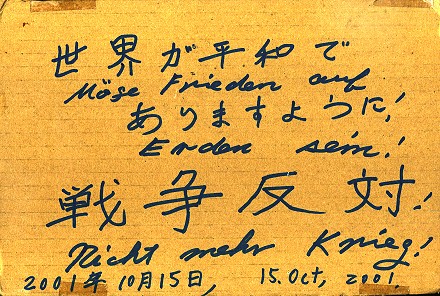 世界が平和で
Möge Frieden auf
ありますように!
Erden sein!
戦争反対!
Nicht mehr Krieg!
2001年10月15日, 15. Oct, 2001.